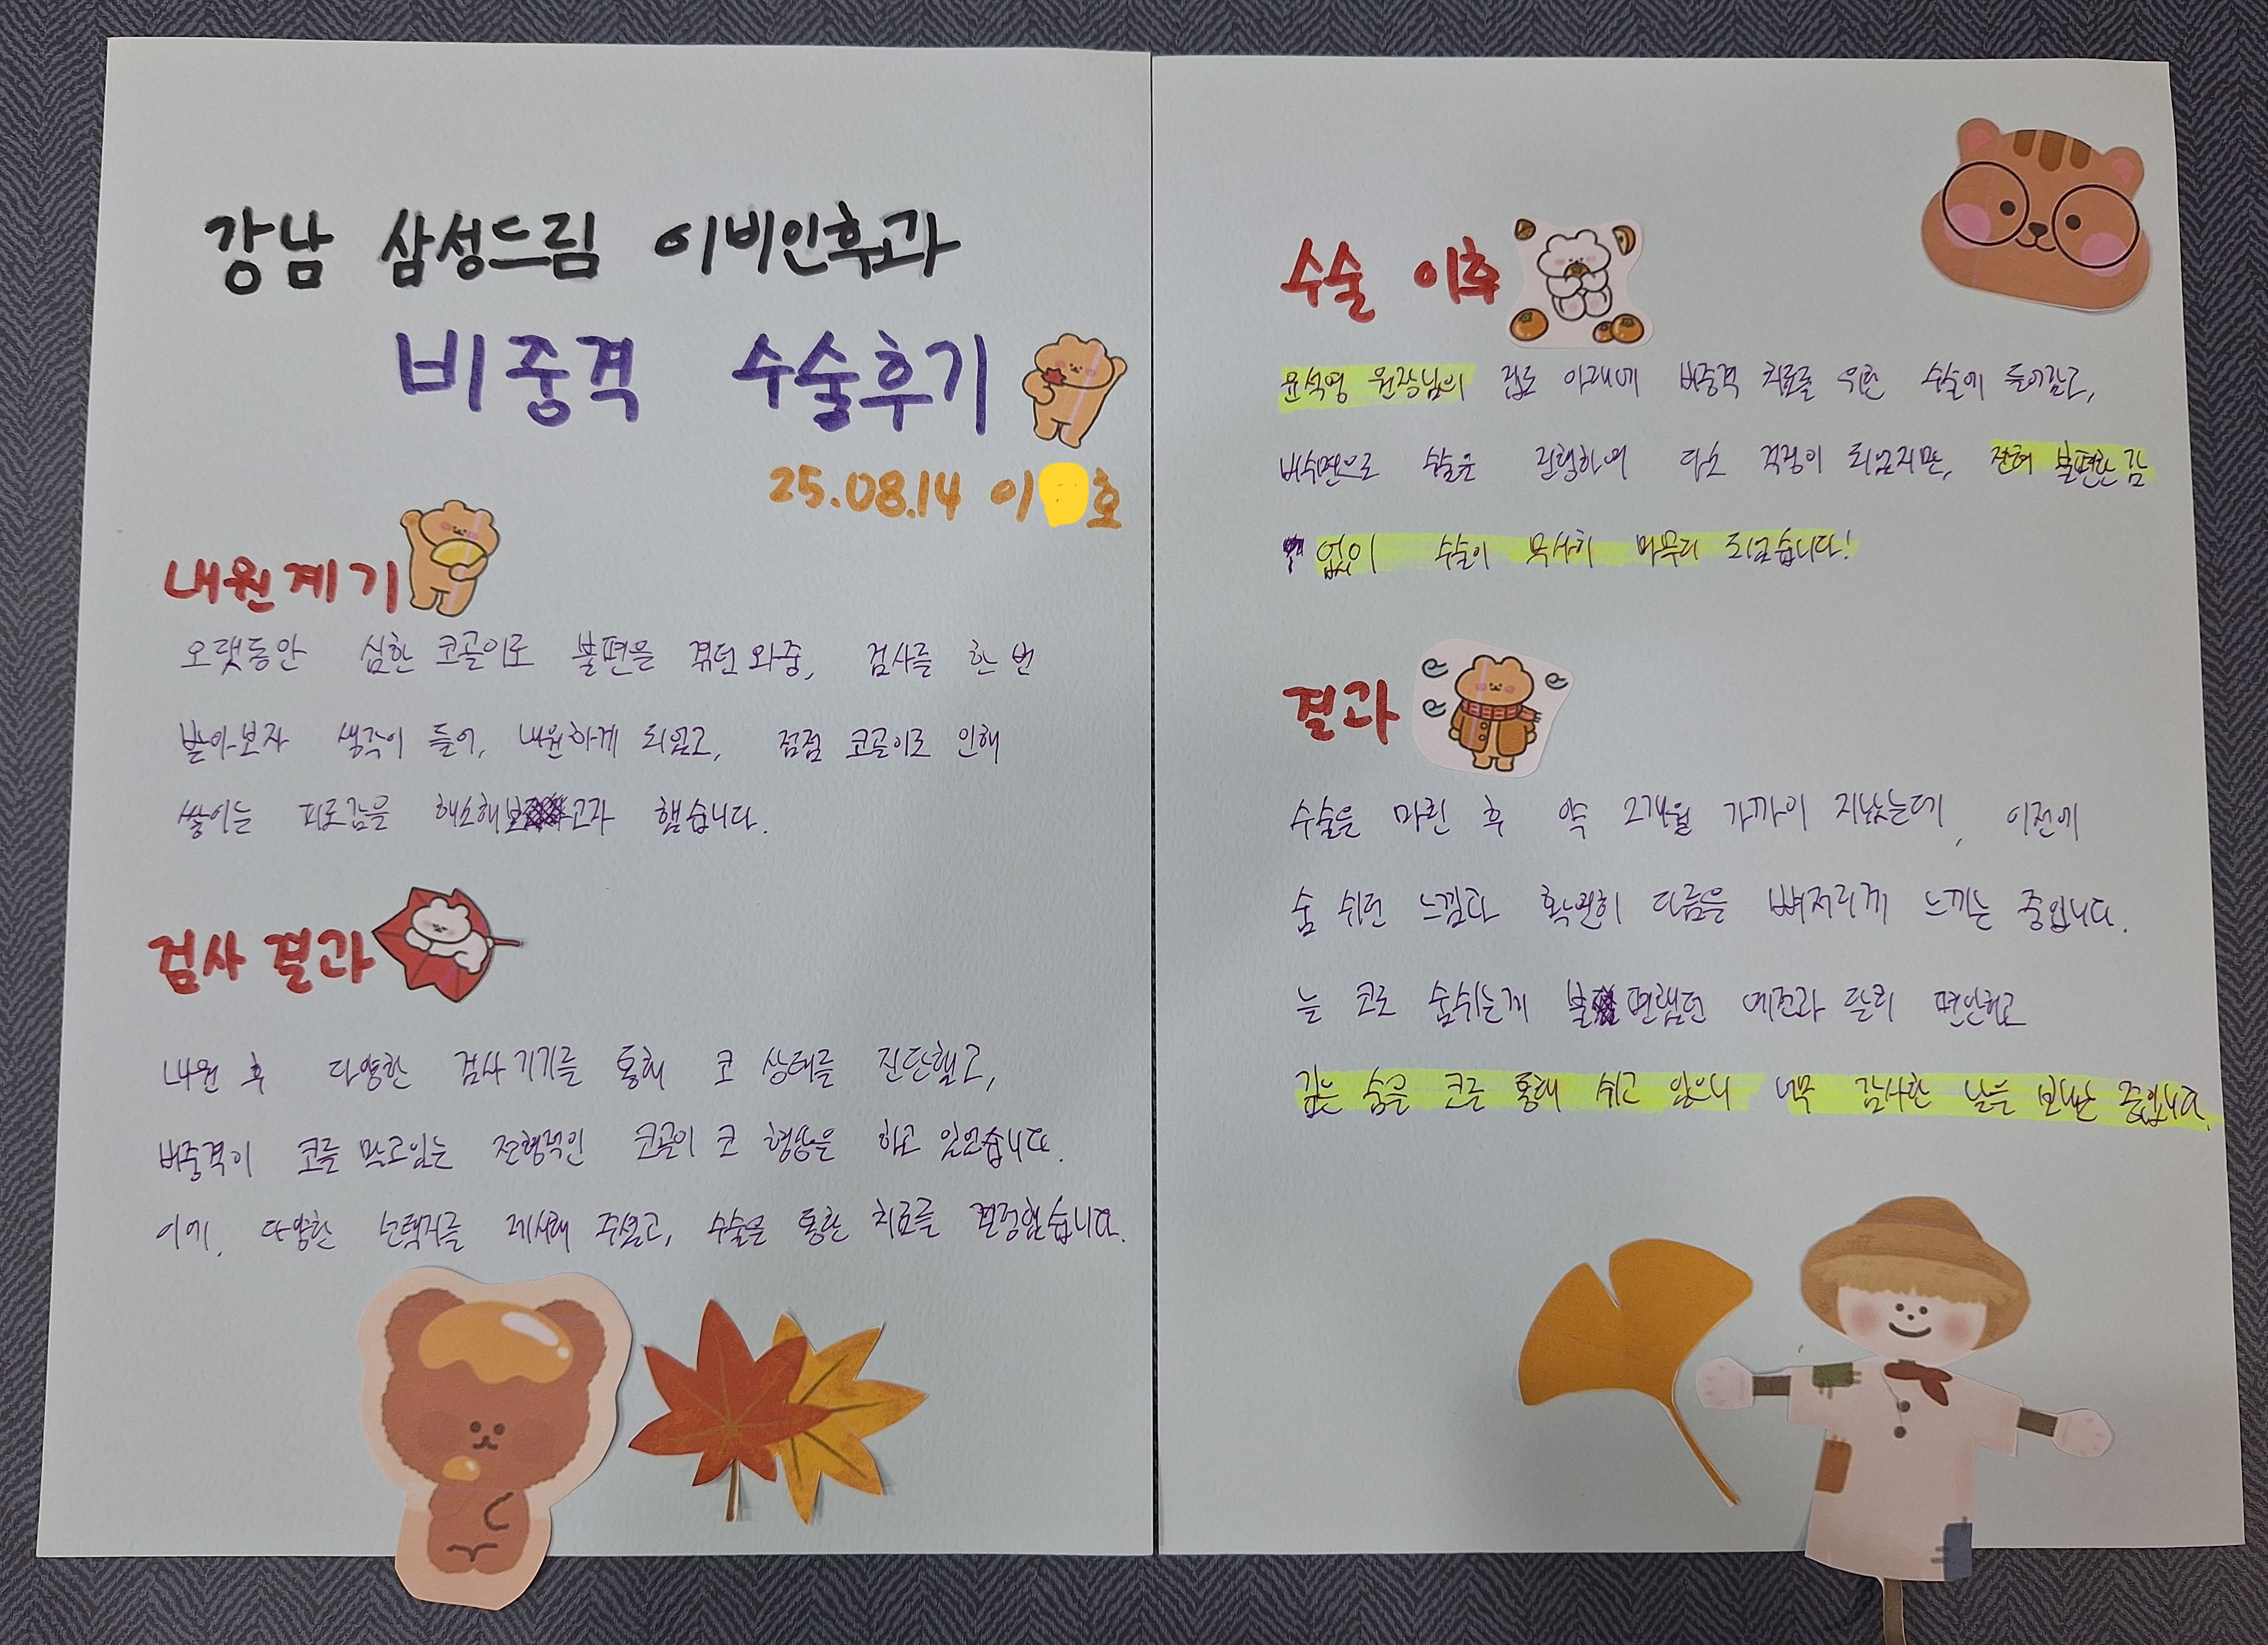 강남 삼성드림 이비인후과
비중격 수술후기
25.08.14 이 호
내원계기
오랫동안 심한 코골이로 불편을 겪던 와중, 검사를 한 번
받아보자 생각이 들어, 내원하게 되었고, 점점 코골이로 인해
쌓이는 피로감을 해소해보고자 했습니다.
검사 결과
내원 후 다양한 검사기기를 통해 코 상태를 진단했고,
비중격이 코를 막고있는 전형적인 코골이 코 형상을 하고 있었습니다.
이에, 다양한 선택지를 제시해 주셨고, 수술을 통한 치료를 결정했습니다.
수술 이후
윤석영 원장님의 집도 아래에 비중격 치료를 위한 수술에 들어갔고,
비수면으로 수술을 진행하여 다소 걱정이 되었지만, 전혀 불편한 감
없이 수술이 무사히 마무리 되었습니다!
결과
수술을 마친 후 약 2개월 가까이 지났는데, 이전에
숨 쉬던 느낌과 확연히 다름을 뼈저리게 느끼는 중입니다.
늘 코로 숨쉬는게 불편했던 예전과 달리 편안하고
깊은 숨을 코를 통해 쉬고 있으니 너무 감사한 날을 보내는 중입니다.